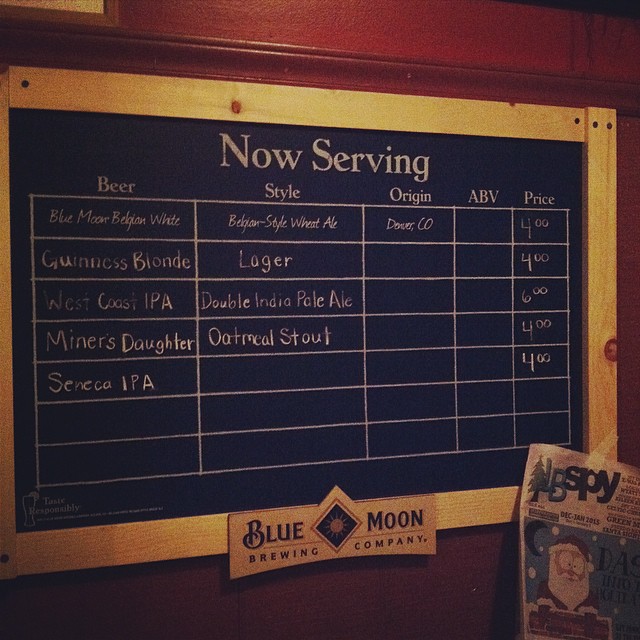 Now Serving
Beer Style Origin ABV Price
Blue Moon Belgian White Belgian-Style Wheat Ale Denver, CO 4.00
Guinness Blonde Lager 4.00
West Coast IPA Double India Pale Ale 6.00
Miner's Daughter Oatmeal Stout 4.00
Seneca IPA 4.00
Taste
Responsibly
BLUE MOON
BREWING COMPANY
spy
DEC-JAN 2015
DAS